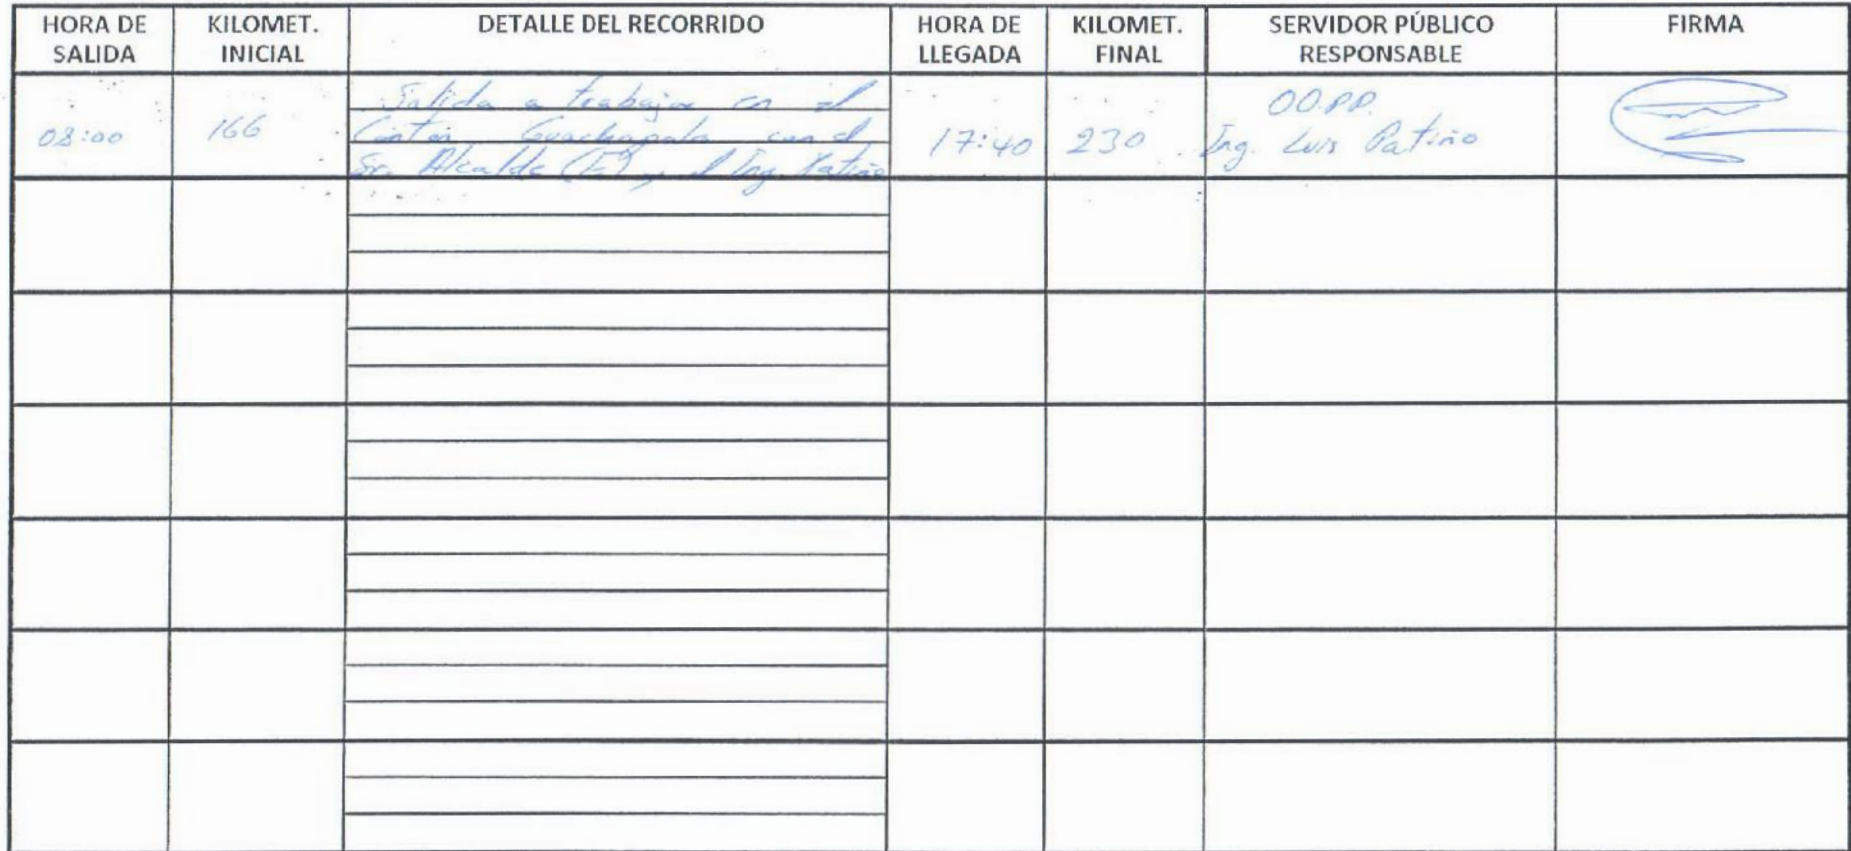 HORA DE SALIDA
KILOMET. INICIAL
DETALLE DEL RECORRIDO
HORA DE LLEGADA
KILOMET. FINAL
SERVIDOR PÚBLICO RESPONSABLE
FIRMA
08:00
166
Salida a trabajar en el
Cantón Guachapala con el
Sr. Alcalde (E) y el Ing. Patiño
17:40
230
OO.PP.
Ing. Luis Patiño